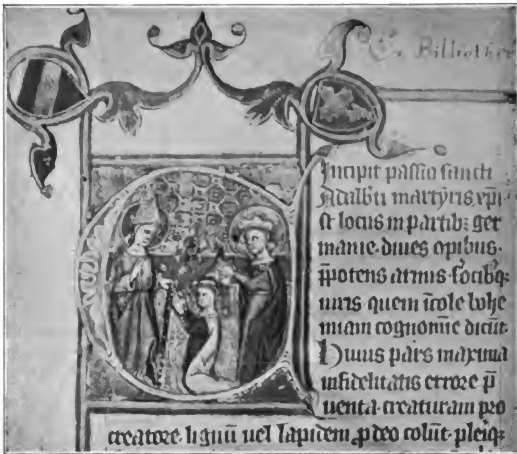 Ex Bibliothe
Incipit passio sancti
Adalbti martyris xpi
st locus in partib; ger
manie· diues opibus·
p̄potens armis· focibq;
uiris quem īcole bohe
miam cognomīe dicūt·
Huius pars maxima
infidelitatis errore p̄
uenta· creaturam pro
creatore· lignū uel lapidem ꝓ deo colūt· pleiq;